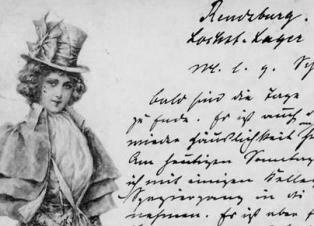 Rendsburg.
Lockst. Lager
M. l. g. Sch
bald sind die Tage
zu Ende. Es ist auch
wieder häuslichkeit
Am heutigen Sonntag
ich mit einigen Kolleg
Spaziergang in di
nehmen. Es ist aber